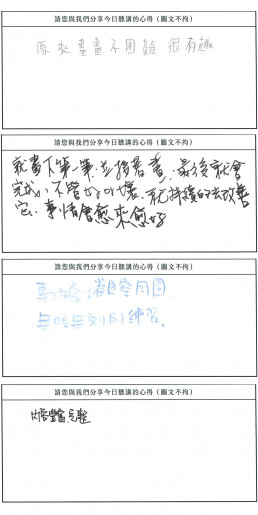 請您與我們分享今日聽講的心得（圖文不拘）
原來畫畫不困難 很有趣
請您與我們分享今日聽講的心得（圖文不拘）
就畫下第一筆，並接著畫，最後就會
完成，不管好或壞，就持續的去改善
它，事情會愈來愈好
請您與我們分享今日聽講的心得（圖文不拘）
觀察周圍
無時無刻的練習、
請您與我們分享今日聽講的心得（圖文不拘）
內容豐富完整